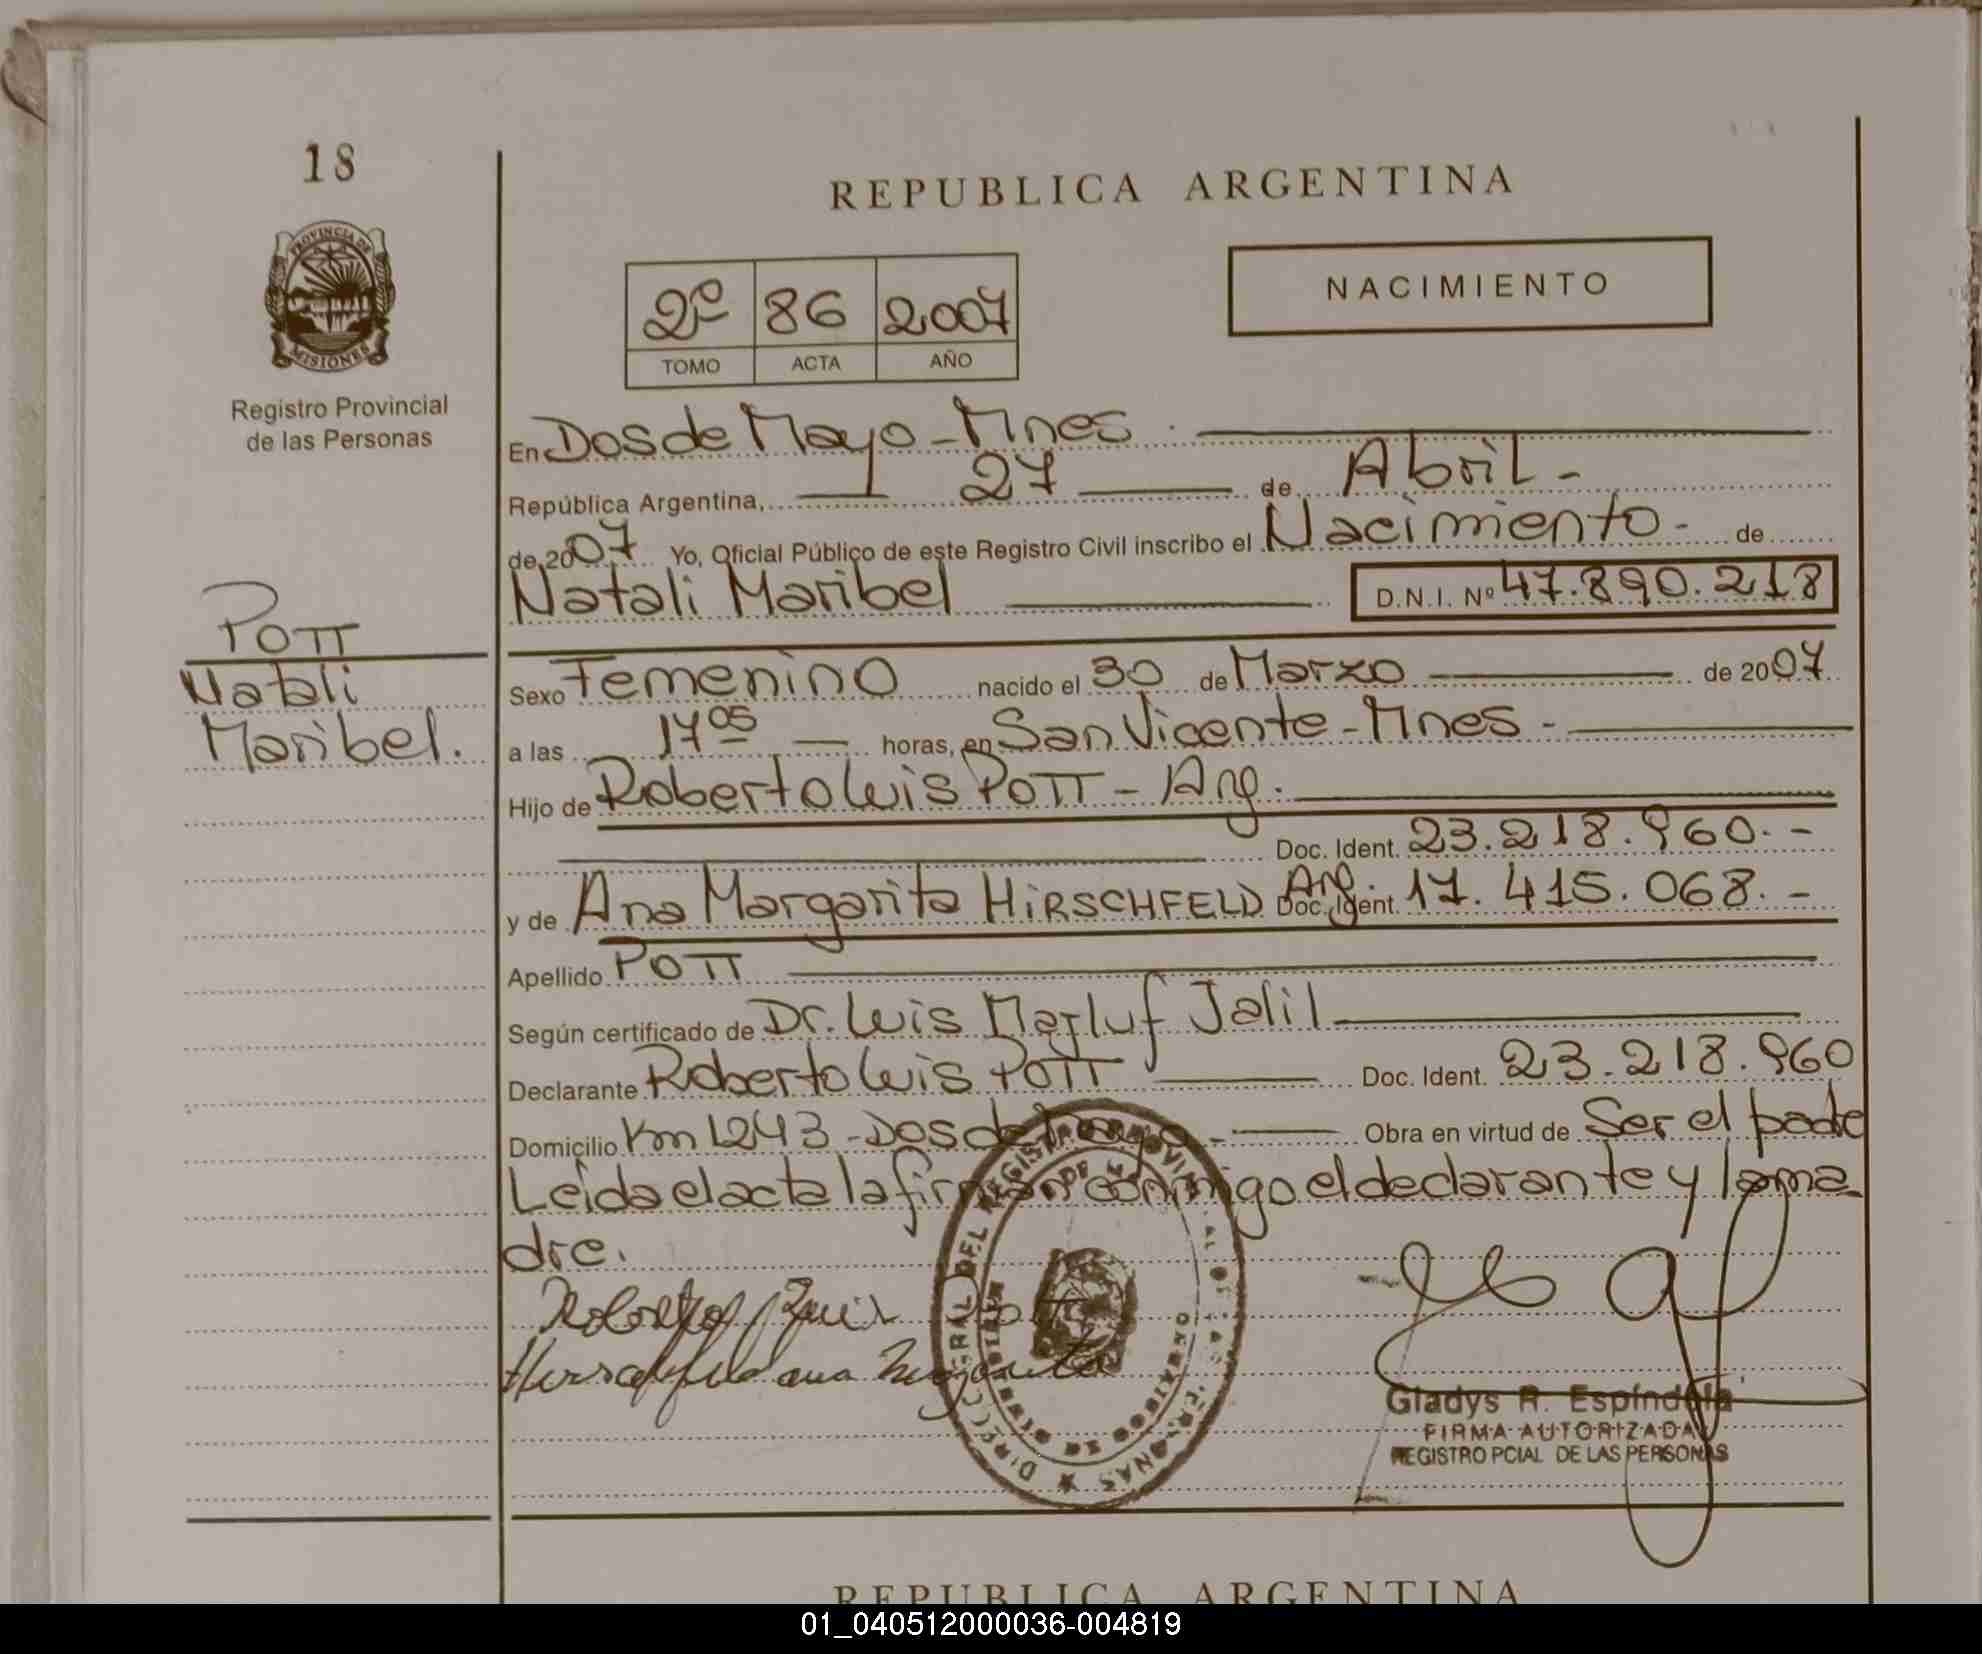 18
REPUBLICA ARGENTINA
PROVINCIA DE
MISIONES
Registro Provincial
de las Personas
2º 86 2007
TOMO ACTA AÑO
NACIMIENTO
En Dos de Mayo - Mnes
República Argentina, 27 de Abril -
de 2007 Yo, Oficial Público de este Registro Civil inscribo el Nacimiento - de
Natali Maribel D.N.I. Nº 47.890.218
POTT
Natali
Maribel.
Sexo Femenino nacido el 30 de Marzo de 2007
a las 17 05 horas, en San Vicente - Mnes -
Hijo de Roberto Luis POTT - Arg.
Doc. Ident. 23.218.960. -
y de Ana Margarita HIRSCHFELD Arg. Doc. Ident. 17.415.068. -
Apellido POTT
Según certificado de Dr. Luis Majluf Jalil
Declarante Roberto Luis POTT Doc. Ident. 23.218.960
Domicilio Km 1243 - Dos de Mayo - Obra en virtud de Ser el padre
Leída el acta la firman conmigo el declarante y la ma
dre.
Roberto Luis Pott
Hirschfeld ana Margarita
Gladys R. Espíndola
FIRMA AUTORIZADA
REGISTRO PCIAL DE LAS PERSONAS
REPUBLICA ARGENTINA
01_040512000036-004819